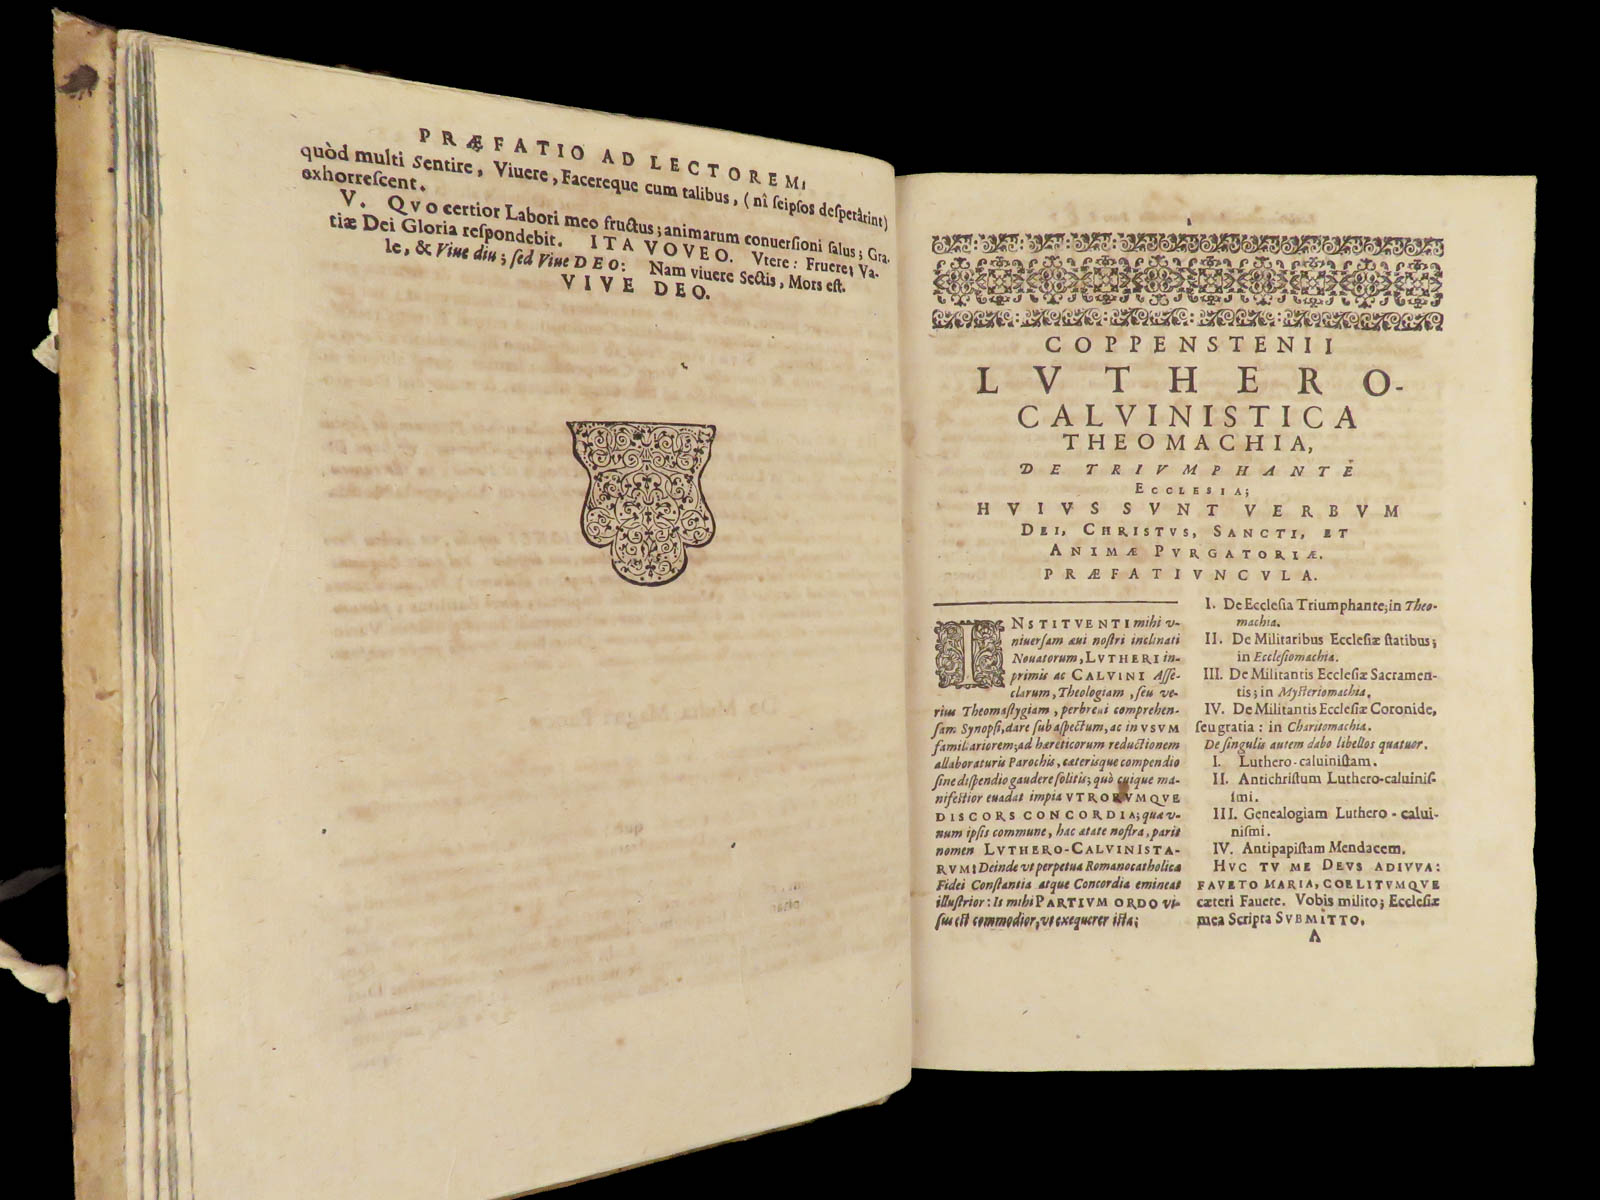 PRÆFATIO AD LECTOREM;
quòd multi Sentire, Viuere, Facereque cum talibus, (nî ſeipſos deſperârint)
exhorreſcent.
V. QVO certior Labori meo fructus; animarum conuerſioni ſalus; Gra-
tiæ Dei Gloria reſpondebit. ITA VOVEO. Vtere: Fruere; Va-
le, & Viue diu; ſed Viue DEO: Nam viuere Sectis, Mors eſt.
VIVE DEO.
COPPENSTENII
LVTHERO-
CALVINISTICA
THEOMACHIA,
DE TRIVMPHANTE
ECCLESIA;
HVIVS SVNT VERBVM
DEI, CHRISTVS, SANCTI, ET
ANIMÆ PVRGATORIÆ.
PRÆFATIVNCVLA.
INSTITVENTI mihi v-
niuerſam æui noſtri inclinati
Nouatorum, LVTHERI in-
primis ac CALVINI Aſſe-
clarum, Theologiam, ſeu ve-
rius Theomaſtygiam, perbreui comprehen-
ſam Synopſi, dare ſub aſpectum, ac in VSVM
familiariorem; ad hæreticorum reductionem
allaboraturis Parochis, cæterisque compendio
ſine diſpendio gaudere ſolitis; quò cuique ma-
nifeſtior euadat impia VTRORVMQVE
DISCORS CONCORDIA; quæ v-
num ipſis commune, hac ætate noſtra, parit
nomen LVTHERO-CALVINISTA-
RVM: Deinde vt perpetua Romanocatholicæ
Fidei Conſtantia atque Concordia emineat
illuſtrior: Is mihi PARTIVM ORDO vi-
ſus eſt commodior, vt exequerer iſta;
I. De Eccleſia Triumphante; in Theo-
machia.
II. De Militaribus Eccleſiæ ſtatibus;
in Eccleſiomachia.
III. De Militantis Eccleſiæ Sacramen-
tis; in Myſteriomachia.
IV. De Militantis Eccleſiæ Coronide,
ſeu gratia: in Charitomachia.
De ſingulis autem dabo libellos quatuor.
I. Luthero-caluiniſtam.
II. Antichriſtum Luthero-caluiniſ-
imi.
III. Genealogiam Luthero-calui-
niſmi.
IV. Antipapiſtam Mendacem.
HVC TV ME DEVS ADIVVA:
FAVETO MARIA, COELITVMQVE
cæteri Fauete. Vobis milito; Eccleſiæ
mea Scripta SVBMITTO.
A